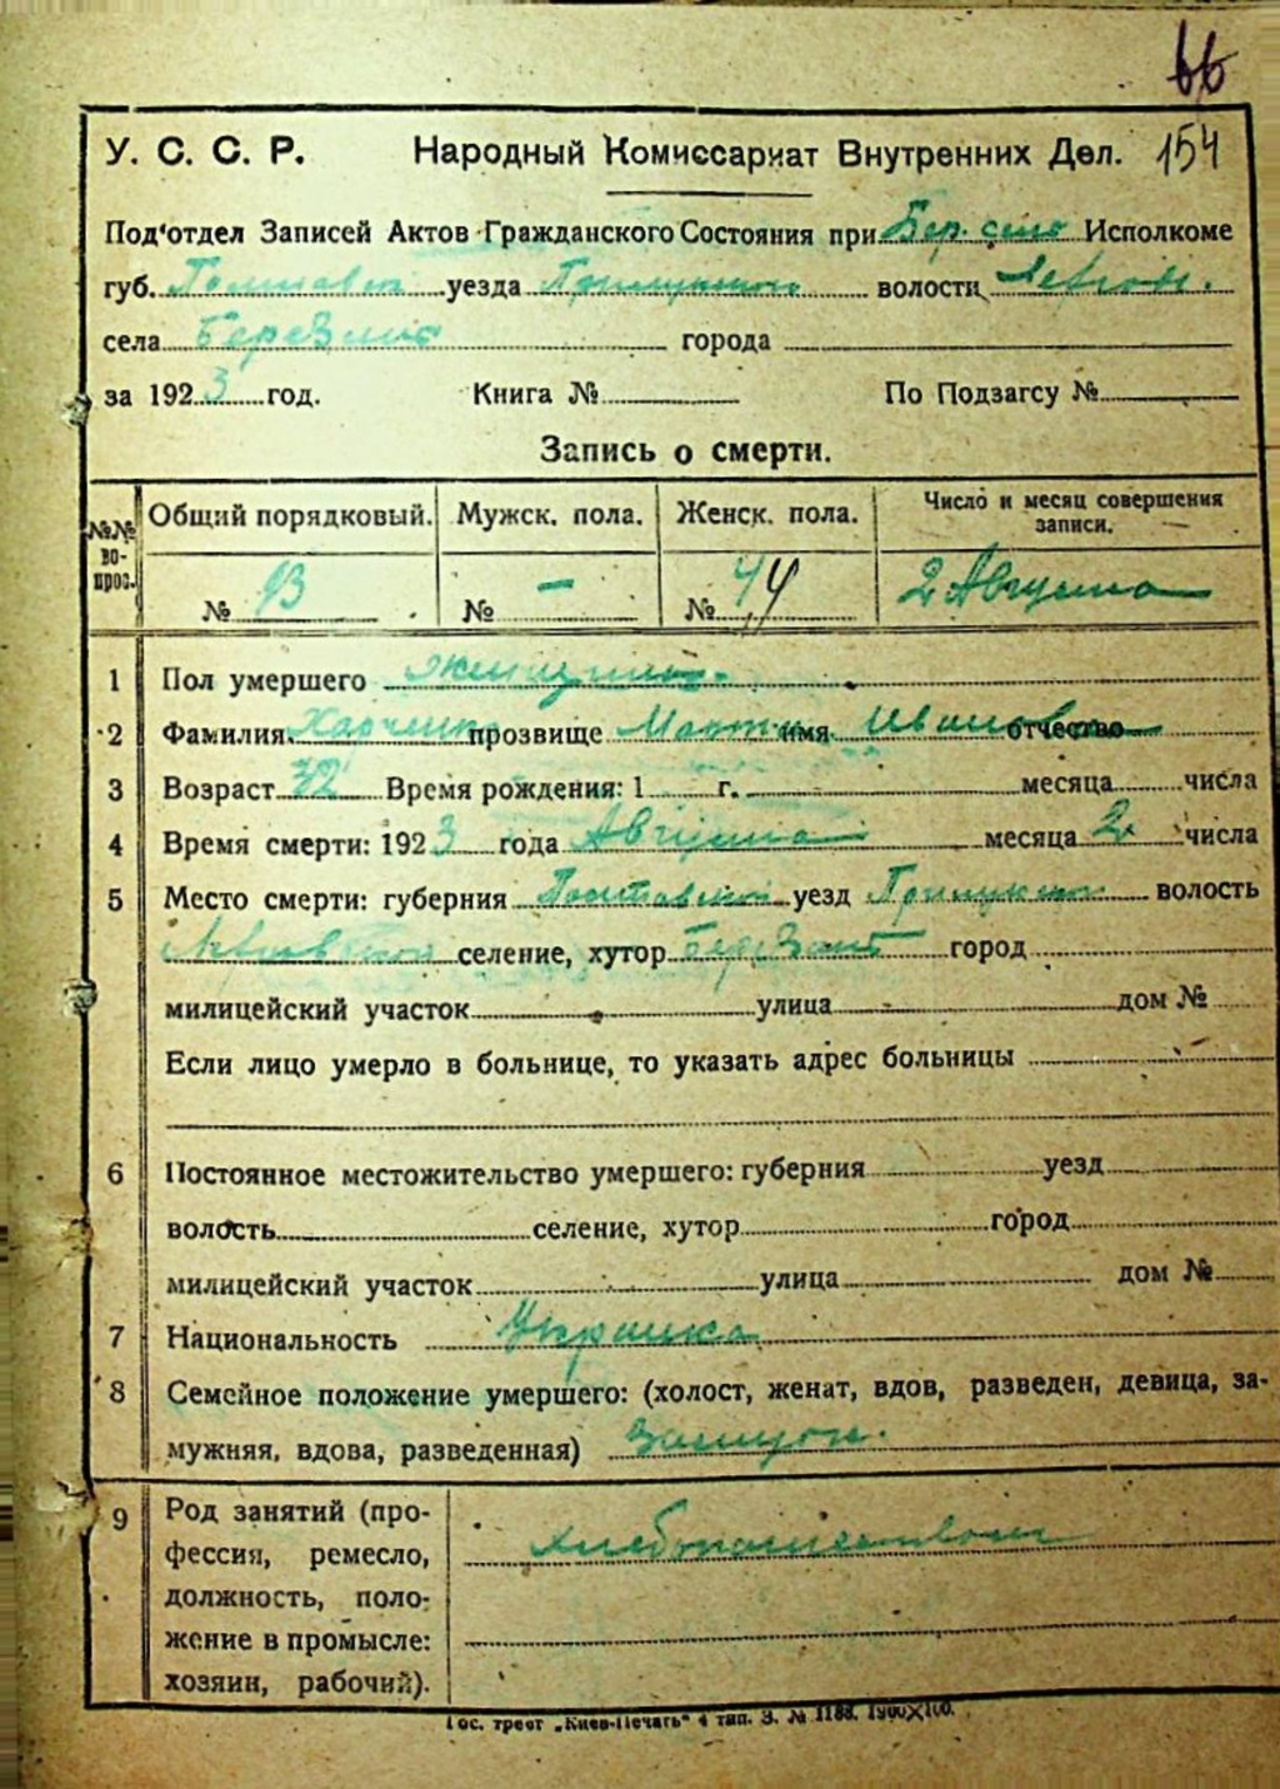 66
У. С. С. Р. Народный Комиссариат Внутренних Дел. 154
Под'отдел Записей Актов Гражданского Состояния при Бер. Исполкоме
губ. уезда волости
села города
за 1923 год. Книга № По Подзагсу №
Запись о смерти.
№№ вопрос. Общий порядковый. Мужск. пола. Женск. пола. Число и месяц совершения записи.
№ 93 № – № 44 2 Августа
1 Пол умершего женщина.
2 Фамилия Харченко прозвище имя отчество
3 Возраст 32 Время рождения: 1 г. месяца числа
4 Время смерти: 1923 года Августа месяца 2 числа
5 Место смерти: губерния Полтавской уезд волость
селение, хутор город
милицейский участок улица дом №
Если лицо умерло в больнице, то указать адрес больницы
6 Постоянное местожительство умершего: губерния уезд
волость селение, хутор город
милицейский участок улица дом №
7 Национальность Украинка
8 Семейное положение умершего: (холост, женат, вдов, разведен, девица, за-
мужняя, вдова, разведенная) замужн.
9 Род занятий (про-
фессия, ремесло, хлебопашеством
должность, поло-
жение в промысле:
хозяин, рабочий).
Гос. трест „Киев-Печать" 4 тип. З. № 1188. 1900×100.